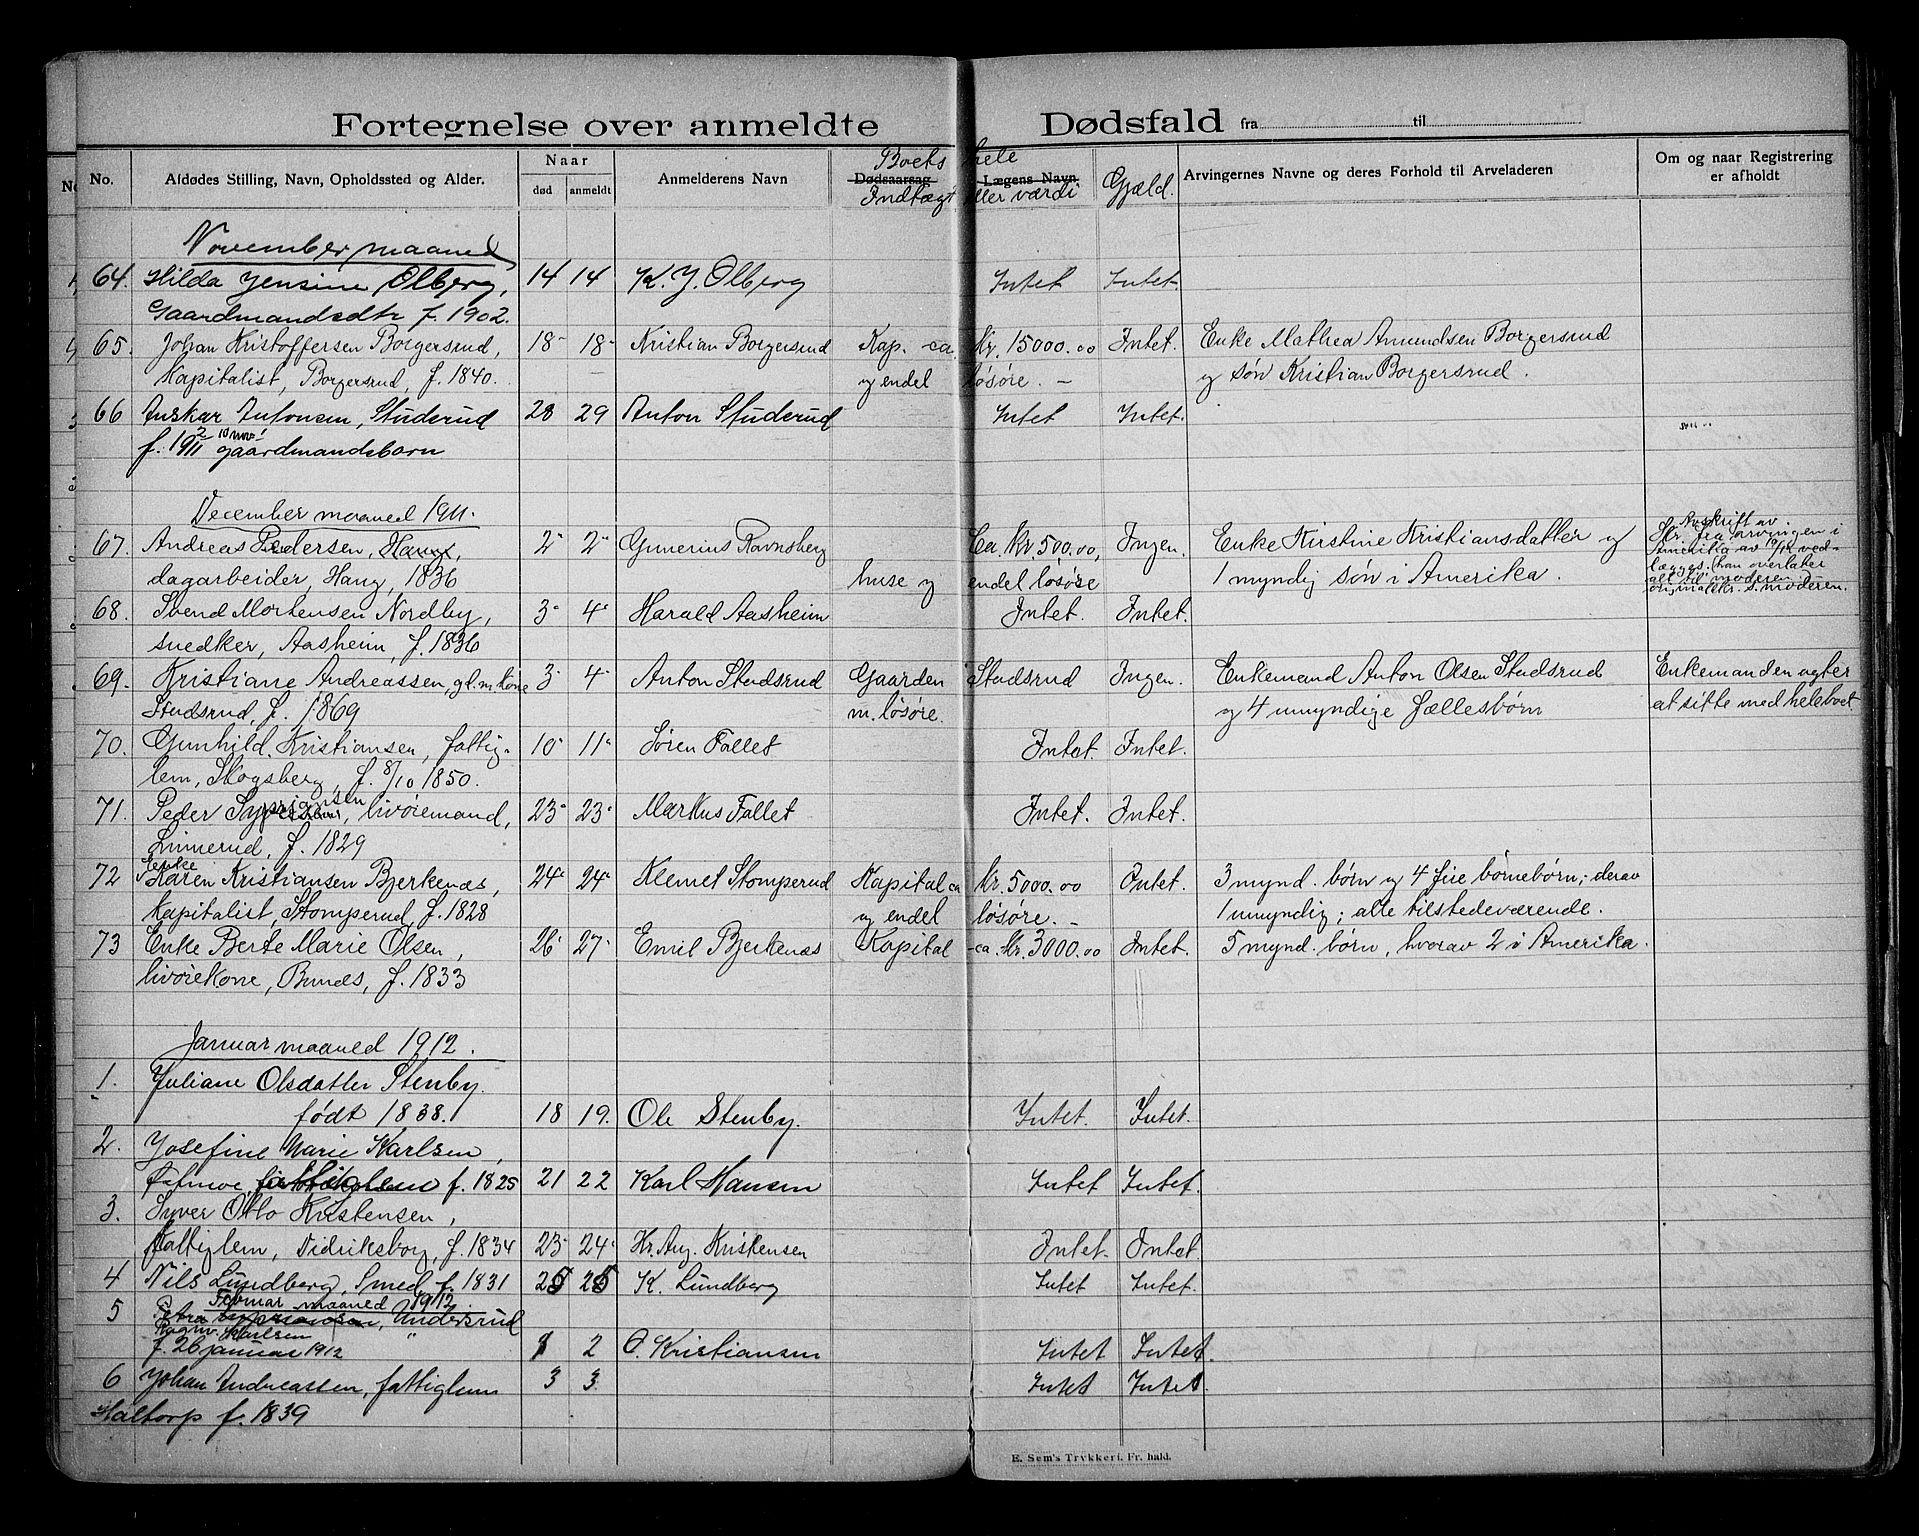 Fortegnelse over anmeldte Dødsfald fra til
No. Afdødes Stilling, Navn, Opholdssted og Alder. Naar død anmeldt Anmelderens Navn Dødsaarsag Lægens Navn Arvingernes Navne og deres Forhold til Arveladeren Om og naar Registrering er afholdt
Boets hele Indtægt eller værdi Gjæld.
November maaned
64. Hilda Jensine Olberg, 14 14 K. J. Olberg Intet Intet
Gaardmandsdtr f. 1902.
65. Johan Kristoffersen Borgersrud, 18 18 Kristian Borgersrud Kap. ca. Kr. 15000.00 Intet. Enke Mathea Amundsen Borgersrud
Kapitalist, Borgersrud, f. 1840. og endel løsøre. og søn Kristian Borgersrud.
66 Anskar Antonsen, Studerud 28 29 Anton Studerud Intet Intet.
f. 1911 gaardmandsbarn
December maaned 1911.
67. Andreas Pedersen, Haug, 2 2 Gunerius Ravnsberg Ca. Kr 500.00, Ingen. Enke Kirstine Kristiansdatter og
dagarbeider, Haug, 1836 huse og endel løsøre 1 myndig søn i Amerika.
Avskrift av Skr. fra arvingen i
Amerika av ved-
lægges. (han overlater
alt til moderen)
68. Svend Mortensen Nordby, 3 4 Harald Aasheim Intet. Intet.
snedker, Aasheim, f. 1836
69. Kristiane Andreassen, g.l.m. kone 3 4 Anton Stadsrud Gaarden Stadsrud Ingen. Enkemand Anton Olsen Stadsrud Enkemanden agter
Stadsrud, f. 1869 m. løsøre. og 4 umyndige fællesbørn at sitte med hele boet
70. Gunhild Kristiansen, fattig- 10 11 Søren Fallet Intet. Intet.
lem, Skogsberg, f. 8/10 1850.
71. Peder Sypriansen, livøremand, 23 23 Markus Fallet Intet. Intet.
Linnerud, f. 1829
72 Enke Karen Kristiansen Bjerkenæs, 24 24 Klemet Stomperud Kapital ca Kr. 5000.00 Intet. 3 mynd. børn og 4 fire børnebørn; derav
Kapitalist, Stomperud, f. 1828 og endel løsøre. 1 umyndig; alle tilstedeværende.
73 Enke Berte Marie Olsen, 26 27 Emil Bjerkenæs Kapital ca. Kr. 3000.00 Intet. 5 mynd. børn, hvorav 2 i Amerika.
livørekone, Bunds, f. 1833
Januar maaned 1912.
1. Juliane Olsdatter Stenby.
født 1838. 18 19. Ole Stenby. Intet. Intet.
2. Josefine Marie Karlsen,
f. 1825 21 22 Karl Hansen Intet Intet.
3. Syver Otto Kristensen,
Fattiglem, Didriksborg, f. 1834 23 24 Kr. Aug. Kristensen Intet. Intet
4 Nils Lundberg, Smed, f. 1831 25 25 K. Lundberg Intet Intet.
Februar maaned 1912
5 Petra Undersrud
Ragnv. Karlsen
f. 26 januar 1912 1 2 O. Kristiansen Intet Intet.
6 Johan Andreassen, fattiglem 3 3. Intet Intet.
Haltorp f. 1839
E. Sem's Trykkeri, Fr. hald.